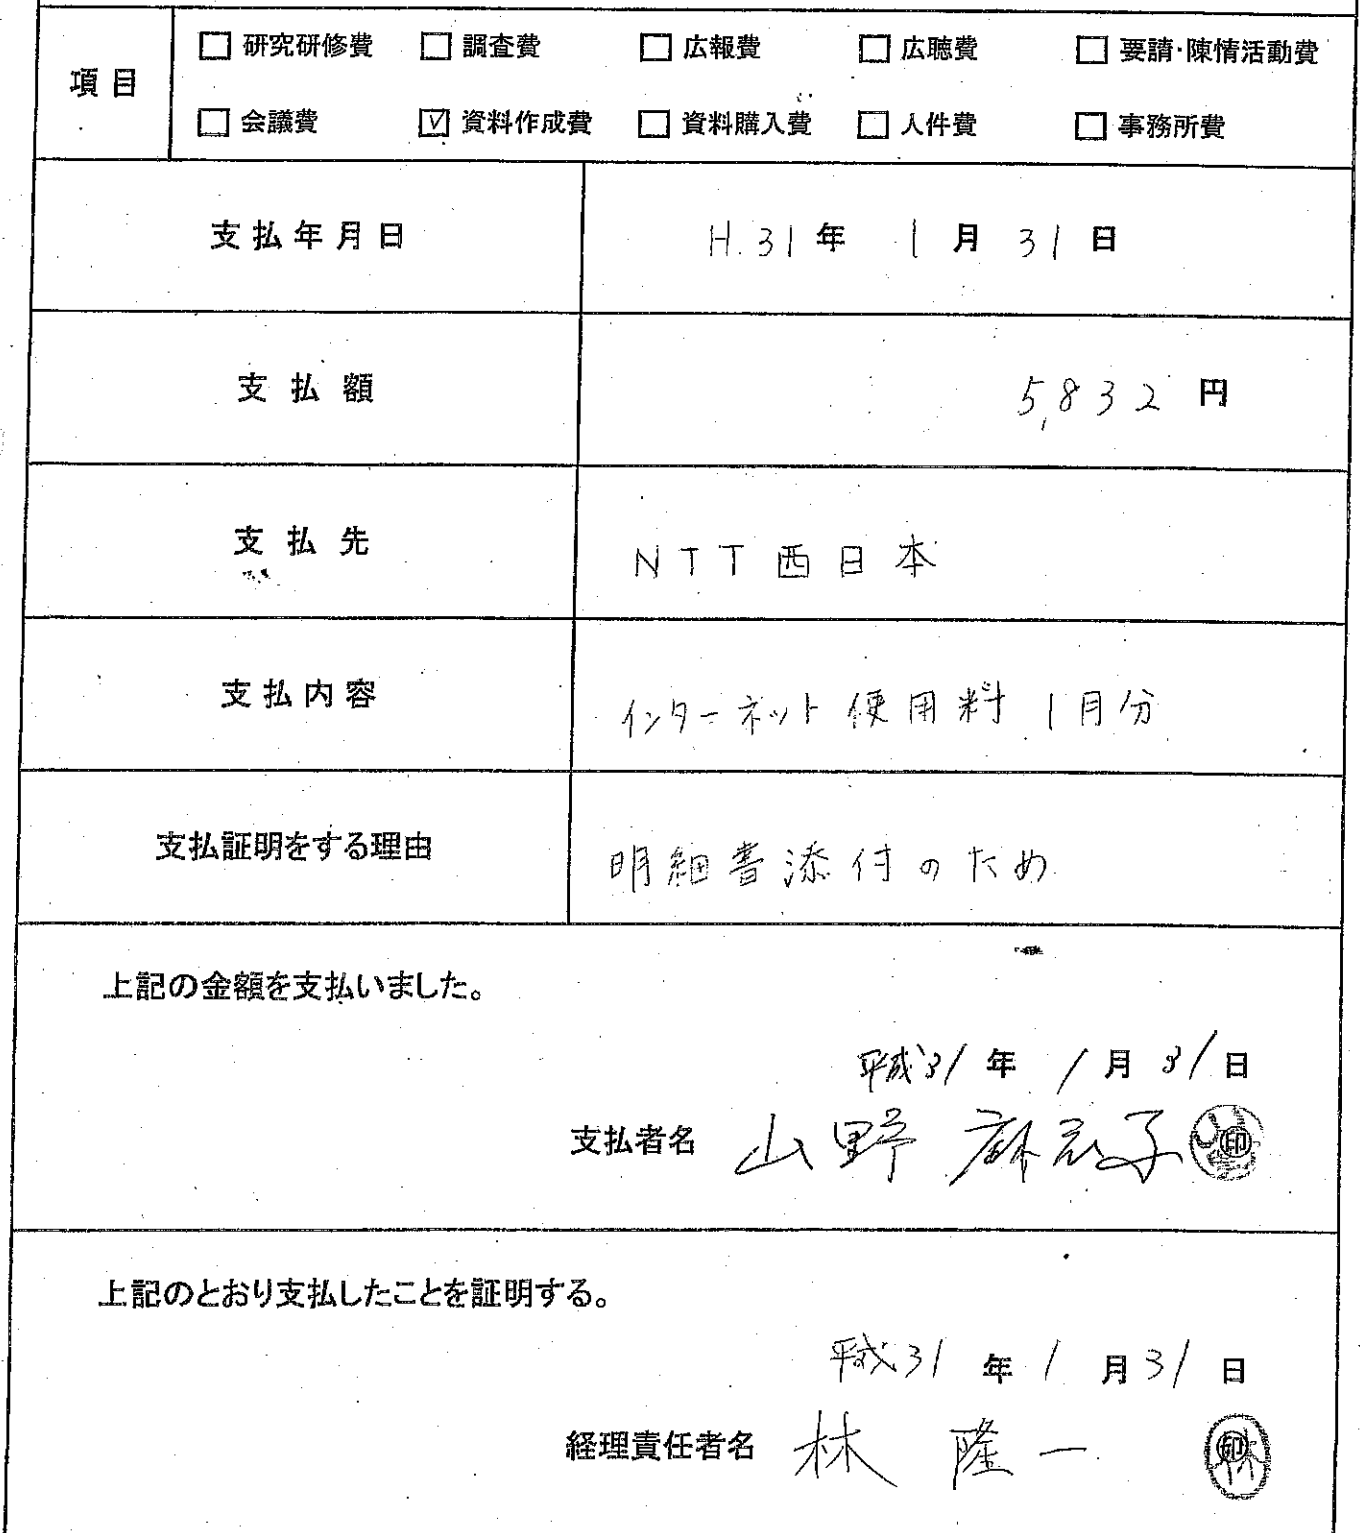 項目
□ 研究研修費 □ 調査費 □ 広報費 □ 広聴費 □ 要請・陳情活動費
□ 会議費 ☑ 資料作成費 □ 資料購入費 □ 人件費 □ 事務所費
支払年月日 H.31年 1月 31日
支払額 5,832 円
支払先 NTT西日本
支払内容 インターネット使用料 1月分
支払証明をする理由 明細書添付のため
上記の金額を支払いました。
平成31年 1月 31日
支払者名 山野 麻衣子 印
上記のとおり支払したことを証明する。
平成31年 1月 31日
経理責任者名 林 隆一 印 林